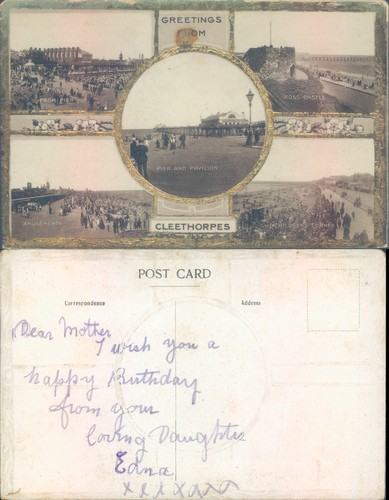 GREETINGS
FROM
ROSS CASTLE
PIER AND PAVILION
AMUSEMENTS
CLEETHORPES
POST CARD
Correspondence
Address
Dear Mother
I wish you a
happy Birthday
from your
loving Daughter
Edna
xxxxxxx